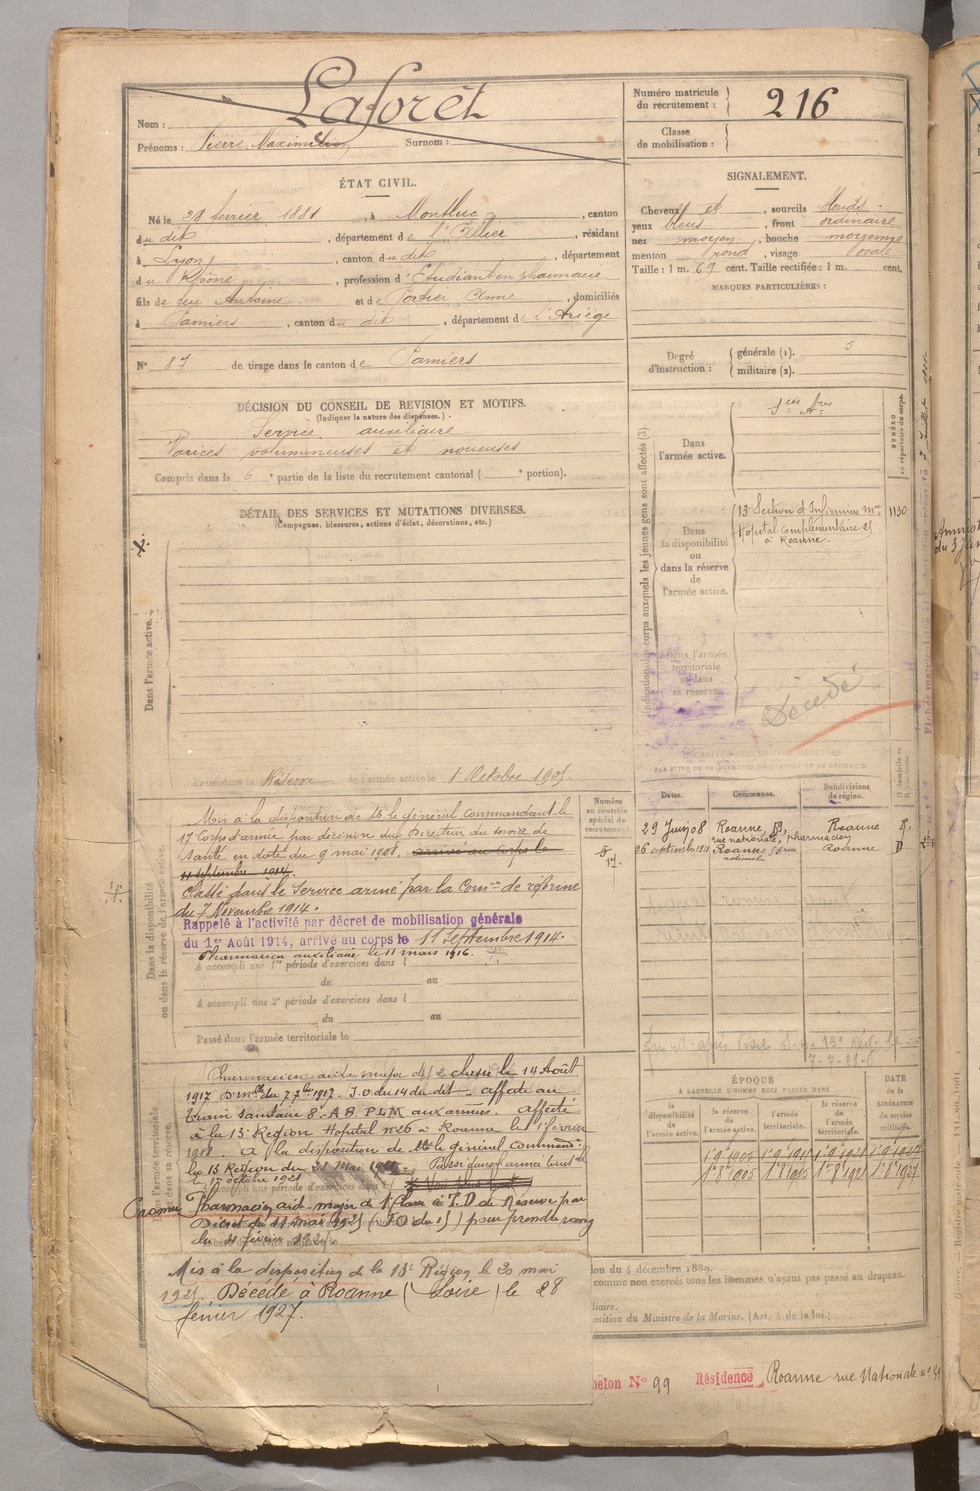 Laforêt
Nom :
Prénoms : Pierre Maximilien Surnom :
Numéro matricule
du recrutement : 216
Classe
de mobilisation :
ÉTAT CIVIL.
Né le 28 février 1881, à Montluçon, canton
du dit, département de l'Allier, résidant
à Lyon, canton du dit, département
du Rhône, profession d'Étudiant en pharmacie
fils de feu Antoine et de Portier Anne, domiciliés
à Pamiers, canton du dit, département de l'Ariège
N° 87 de tirage dans le canton de Pamiers
SIGNALEMENT.
Cheveux et, sourcils blonds
yeux bleus, front ordinaire
nez moyen, bouche moyenne
menton rond, visage ovale
Taille : 1 m. 69 cent. Taille rectifiée : 1 m. cent.
MARQUES PARTICULIÈRES :
Degré
d'instruction :
générale (1). 5
militaire (2).
DÉCISION DU CONSEIL DE REVISION ET MOTIFS.
(Indiquer la nature des dispenses.)
Service auxiliaire
Varices volumineuses et noueuses
Compris dans la 6e partie de la liste du recrutement cantonal ( e portion).
DÉTAIL DES SERVICES ET MUTATIONS DIVERSES.
(Campagnes, blessures, actions d'éclat, décorations, etc.)
Dans l'armée active.
Indication des corps auxquels les jeunes gens sont affectés (3).
NUMÉRO
au répertoire du corps.
Dans
l'armée active.
Sces Ares
Dans
la disponibilité
ou
dans la réserve
de
l'armée active.
13e Section d'Infirmiers mres
Hopital complémentaire 25
à Roanne.
1130
Dans l'armée
territoriale
et dans
sa réserve.
Décédé
Passé dans la Réserve de l'armée active le 1 Octobre 1905.
Dans la disponibilité
ou dans la réserve de l'armée active.
Mis à la disposition de Mr le général commandant le
17e Corps d'armée par décision du Directeur du service de
santé en date du 9 mai 1908. arrivé au corps le
11 septembre 1914.
Classé dans le Service armé par la Comon de réforme
du 7 Novembre 1914.
Rappelé à l'activité par décret de mobilisation générale
du 1er Août 1914, arrivé au corps le 11 Septembre 1914.
Pharmacien auxiliaire le 11 mars 1916.
A accompli une 1re période d'exercices dans l
du au
A accompli une 2e période d'exercices dans l
du au
Passé dans l'armée territoriale le
Numéro
au contrôle
spécial du
recrutement.
Dates. Communes. Subdivisions
de région.
29 Juin 08 Roanne, 59, rue nationale, pharmacien Roanne R.
26 septembre 1911 Roanne 59 rue nationale Roanne D
Pharmacien aide major de 2e classe le 14 Août
1917 D. mlle du 7 7bre 1917. J.O du 14 du dit affecté au
train sanitaire 8 A B P.L.M aux armées. affecté
à la 13e Région Hopital n° 26 à Roanne le 1 février
1918. à la disposition de Mr le général command.
la 13 Région du 25 mai Passé dans l'armée terrale
le 1er octobre 1921
Promu Pharmacien aide-major de 1e Classe à T.D de Réserve par
Décret du 11 mai 1925 (J.O du 15) pour prendre rang
du
Mis à la disposition de la 13e Région le 20 mai
1925. Décédé à Roanne (Loire) le 28
février 1927.
ÉPOQUE
À LAQUELLE L'HOMME DOIT PASSER DANS
DATE
DE LA
LIBÉRATION
du service
militaire.
la
disponibilité
de
l'armée active.
la réserve
de
l'armée active.
l'armée
territoriale.
la réserve
de
l'armée
territoriale.
1.8.1905
on du 4 décembre 1889.
comme non exercés tous les hommes n'ayant pas passé au drapeau.
liaire.
position du Ministre de la Marine. (Art. 4 de la loi.)
elon N° 99
Résidence Roanne rue Nationale n° 59